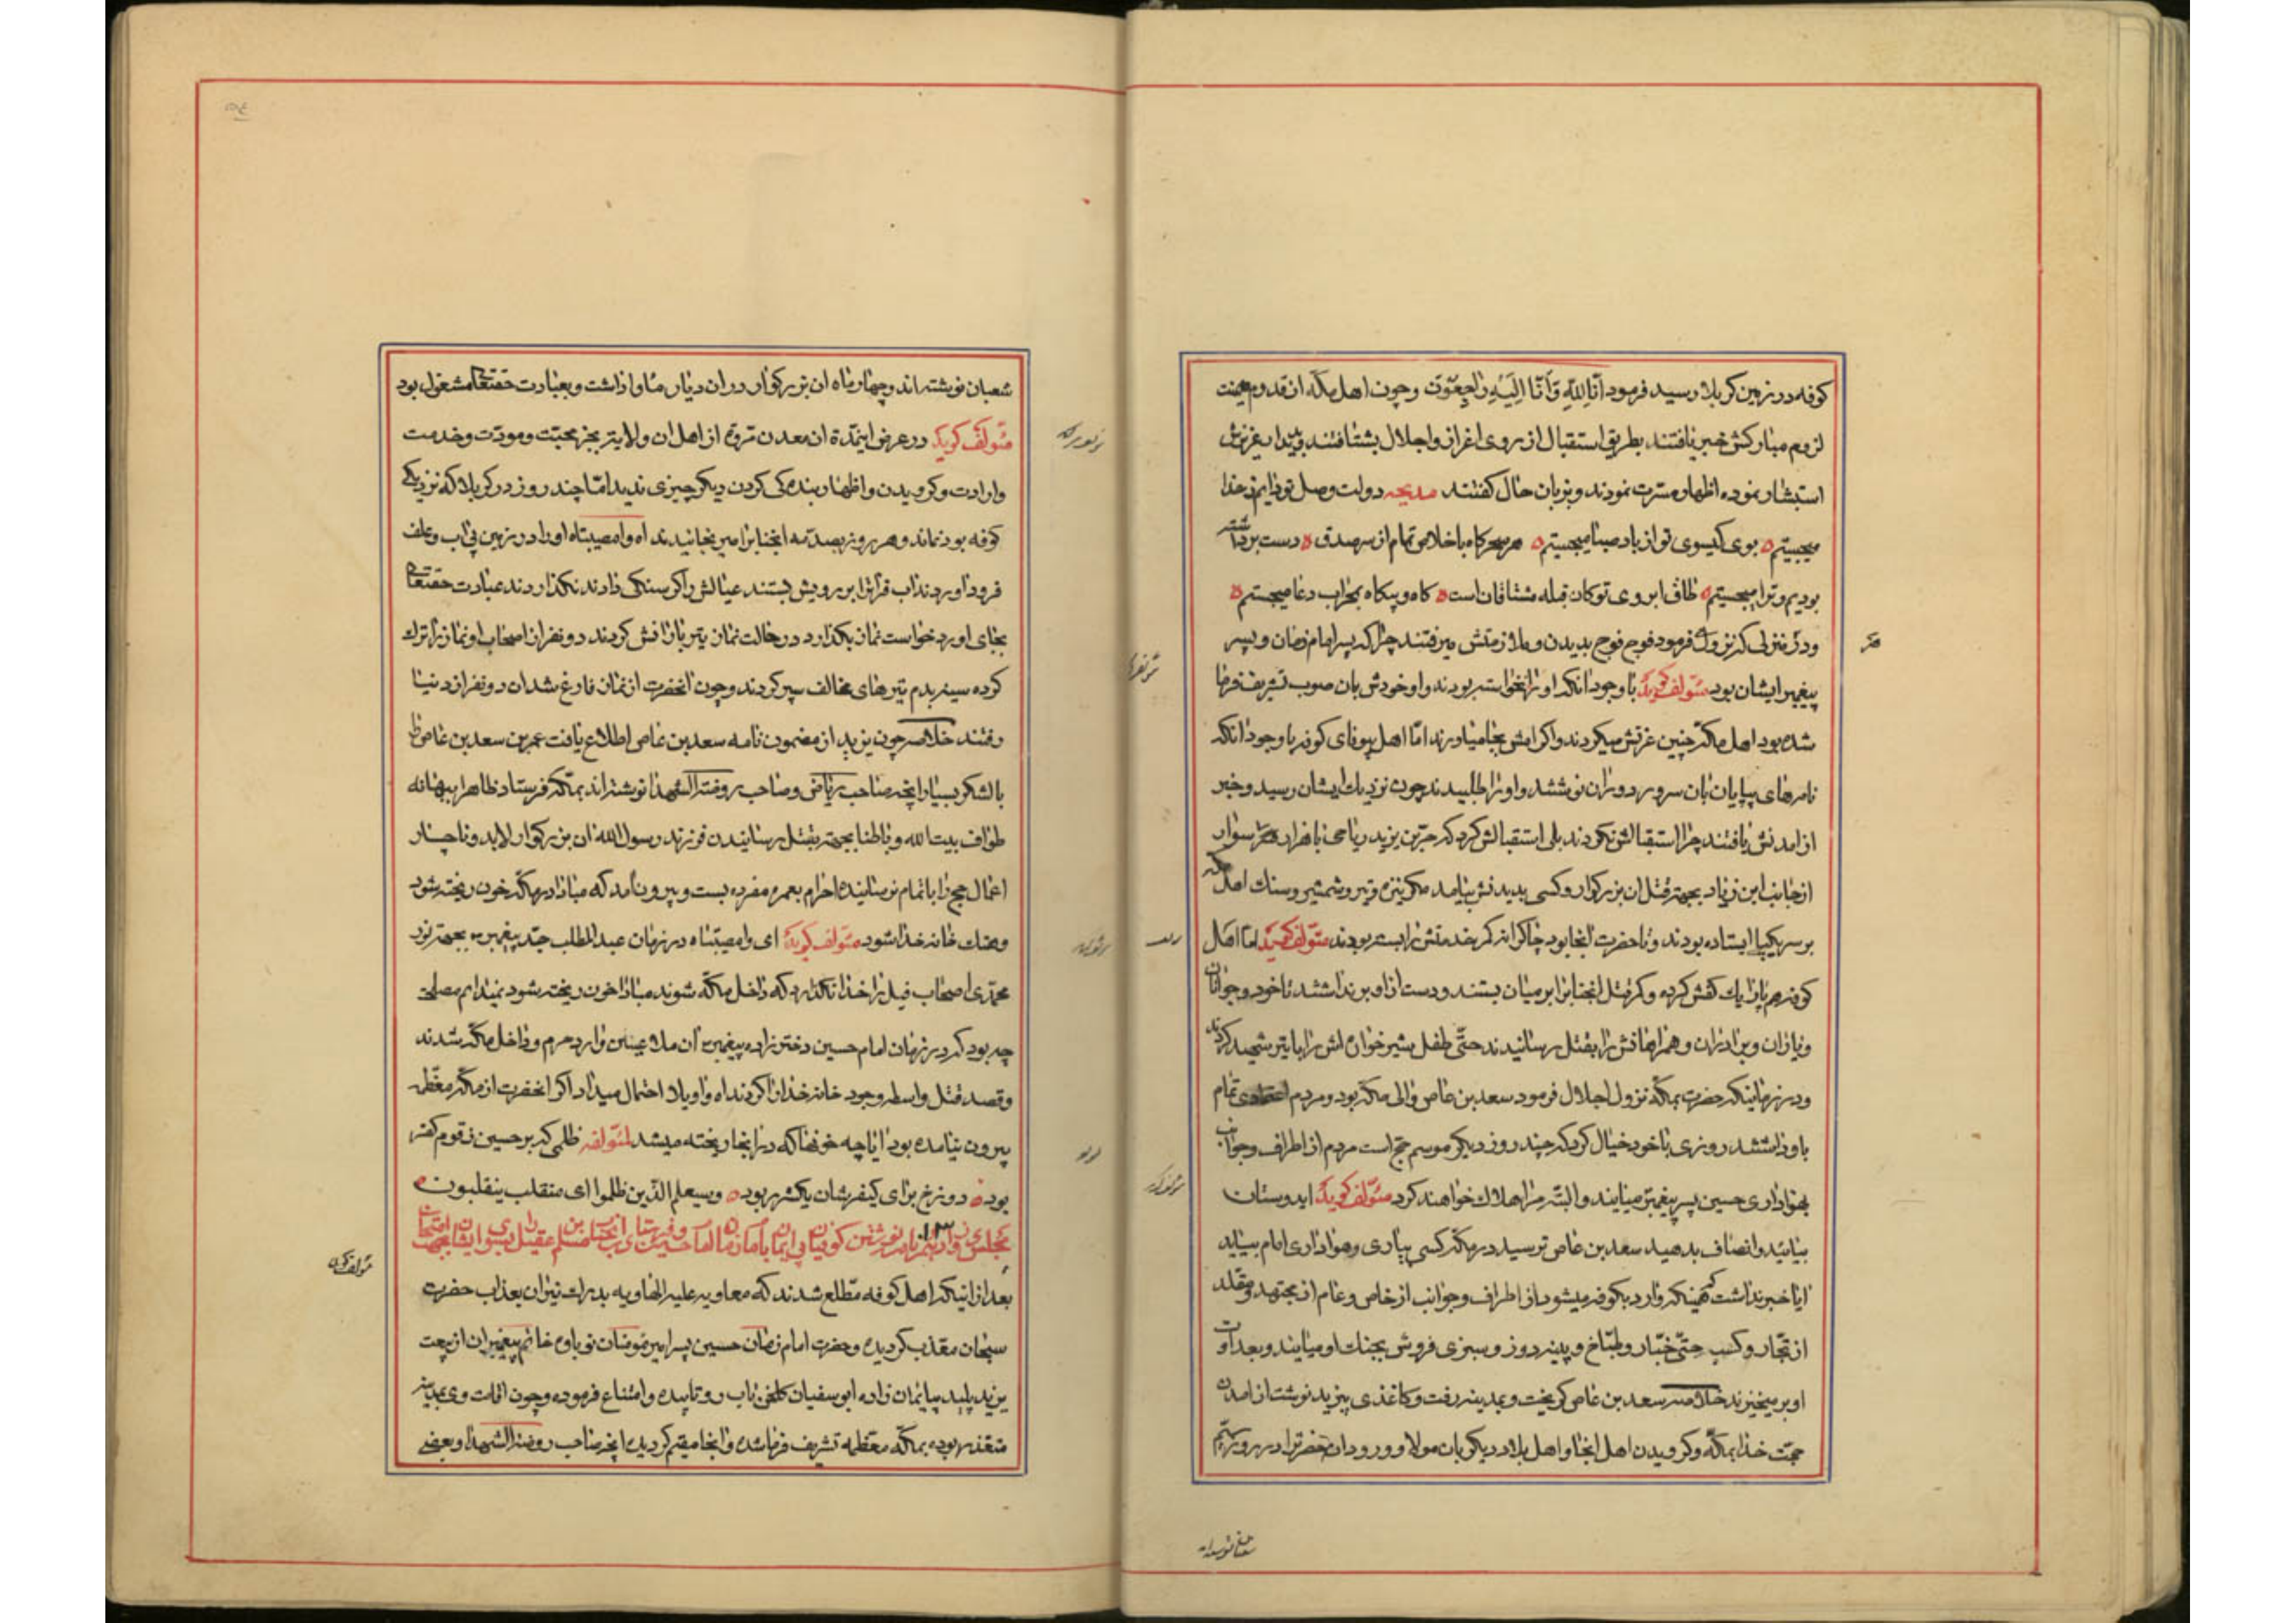 کوفه در زمین کربلا رسید فرمود انّا للّه وَاَنّا اِلَیْهِ رٰاجِعُوٓن و چون اهل مکّه از قدوم میمنت
لزوم مبارکش خبر یافتند بطریق استقبال از روی اغزاز و اجلال بشتافتند و بدیدار عزیزش
استبشار نموده اظهار مسرت نمودند و بزبان حال کفتند مدیحه دولت وصل تو دایم ز خدا
میجستیم بوی کیسوی تو از باد صبا میجستیم هر سحرکاه باخلاص تمام از سر صدق دست برداشته
بودیم و ترا میجستیم طاق ابروی تو کان قبله مشتاقان است کاه و بیکاه بمحراب دعا میجستیم
ودر منزلی که نزول فرمود فوج فوج بدیدن و ملازمتش میرفتند چرا که پسر امام زمان و پسر
پیغمبر ایشان بود مؤلّف کوید با وجود آنکه او را نخواسته بودند و او خودش بان صوب تشریف فرما
شده بود اهل مکّه چنین عزتش میکردند و اکرامش بجا میاوردند امّا اهل بیوفای کوفه با وجود آنکه
نامه‌های بیپایان بان سرور دوران نوشتند و او را طلبیدند چون نزدیک ایشان رسید و خبر
از امدنش یافتند چرا استقبالش نکردند بلی استقبالش کرد که حرّبن یزید ریاحی با هزار سوار
از جانب ابن زیاد بجهة قتل ان بزرکوار و کسی بدیدنش نیامد مکر نیزه و تیر و شمشیر و سنک اهل مکه
بر سر یکپا ایستاده بودند و تا حضرت انجا بود چاکرانه کمر خدمتش را بسته بودند مؤلّف کوید امّا اهل
کوفه هم پا را یک کفش کرده و کمر قتل انجناب را بر میان بستند و دست از او بر نداشتند تا خود و جوانان
و یاران و برادران و همراهانش را بقتل رسانیدند حتّی طفل شیر خواره‌اش را با تیر شهید کردند
و در زمانیکه حضرت بمکّه نزول اجلال فرمود سعد بن عاص والی مکّه بود و مردم اعتقادی تمام
باو داشتند روزی با خود خیال کرد که چند روز دیکر موسم حجّ است مردم از اطراف و جوانب
بهواداری حسین پسر پیغمبر میایند و البتّه مرا هلاک خواهند کرد مؤلّف کوید ایدوستان
بیائید و انصاف بدهید سعد بن عاص ترسید در مکّه کسی بیاری و هواداری امام بیاید
ایا خبر نداشت که همینکه وارد بکوفه میشود از اطراف و جوانب از خاص و عام از مجتهد و مقلد
از تجّار و کسبه حتّی خبّاز و طبّاخ و پینه دوز و سبزی فروش بجنک او میایند و بعداوت
او بر میخیزند خلاصه سعد بن عاص کریخت و بمدینه رفت و کاغذی بیزید نوشت از امدن
حجّت خدا بمکّه و کرویدن اهل انجا و اهل بلاد دیکر بان مولا و ورود ان حضرترا در روز سیّم
شعبان نوشته‌اند
شعبان نوشته‌اند و چهار ماه ان بزرکوار در ان دیار ماوا داشت و بعبادت حقتعالی مشغول بود
مؤلّف کوید در عرض اینمدّة ان معدن مروّة از اهل ان ولایت بجز محبّت و مودّت و خدمت
و ارادت و کرویدن و اظهار بندکی کردن دیکر چیزی ندید امّا چند روز در کربلا که نزدیکی
کوفه بود نماند و هر روز بصد صدمه انجناب را میرنجانیدند اه وا مصیبتاه او را در زمین بی اب و علف
فرود اوردند اب فراترا بر رویش بستند عیالش را کرسنکی دادند نکذاردند عبادت حقتعالی
بجای اورد خواست نماز بکذارد در حالت نماز تیر بارانش کردند دو نفر از اصحاب او نماز را ترک
کرده سینه بدم تیرهای مخالف سپر کردند و چون انحضرت از نماز فارغ شد ان دو نفر از دنیا
رفتند خلاصه چون یزید از مضمون نامه سعد بن عاص اطلاع یافت عمر بن سعد بن عاص را
با لشکر بسیار انچه صاحب ریاض و صاحب روضة الشهدا نوشته‌اند بمکّه فرستاد ظاهرا ببهانه
طواف بیت الله و باطنا بجهة بقتل رسانیدن فرزند رسول الله ان بزرکوار لابد و ناچار
اعمال حج را باتمام نرسانیده احرام بعمره مفرده بست و بیرون امد که مبادا در مکّه خون ریخته شود
و هتک خانه خدا شود مؤلّف کوید ای وا مصیبتاه در زمان عبد المطلب جدّ پیغمبر بجهة نور
محمّدی اصحاب فیل را خدا نکذارد که داخل مکّه شوند مبادا خون ریخته شود نمیدانم مصلحة
چه بود که در زمان امام حسین دختر زاده پیغمبر ان ملاعین وارد حرم و داخل مکّه شدند
و قصد قتل واسطه وجود خانه خدا را کردند اه و اویلا احتمال میداد اکر انحضرت از مکّه معظّمه
بیرون نیامده بود ایا چه خونها که در انجا ریخته میشد لمؤلّفه ظلمی که بر حسین ز قوم کفر
بود دوزخ برای کیفرشان یکشرر بود و سیعلم الّذین ظلموا ای منقلب ینقلبون
مجلس دوازدهم نامه نوشتن کوفیان بی ایمان بامام زمان امام حسین و فرستادن انجناب مسلم بن عقیل را بسوی ایشان
بعد از اینکه اهل کوفه مطّلع شدند که معاویه علیه الهاویه بدرک نیران بعذاب حضرت
سبحان معذّب کردیده و حضرت امام زمان حسین پسر امیر مؤمنان نوباوه خاتم پیغمبران از بیعت
یزید پلید بی ایمان زاده ابوسفیان رو تابیده و امتناع فرموده و چون اقامت وی بمدینه
متعذر بوده بمکّه معظّمه تشریف فرما شده و انجا مقیم کردیده انچه صاحب روضة الشهدا و بعضی
مؤلف کوید